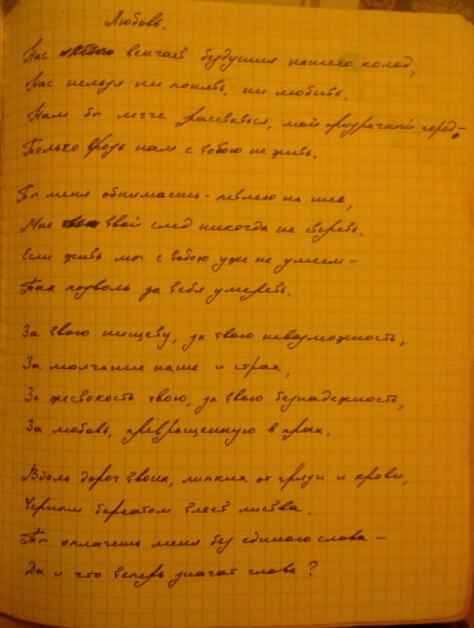 Любовь.
Нас венчает будущия нашего холод,
Нас нельзя ни понять, ни любить.
Нам бы легче расстаться, мой призрачный город,
Только врозь нам с тобою не жить.
Ты меня обнимаешь – петлею на шее,
Мне твой след никогда не стереть.
Если жить мы с тобою уже не умеем –
Так позволь за тебя умереть.
За твою нищету, за твою невозможность,
За молчание наше и страх,
За жестокость твою, за твою безнадежность,
За любовь, превращенную в прах.
Вдоль дорог твоих, липких от грязи и крови,
Черным бархатом листва.
Ты оплачешь меня без единого слова –
Да и что теперь значат слова?